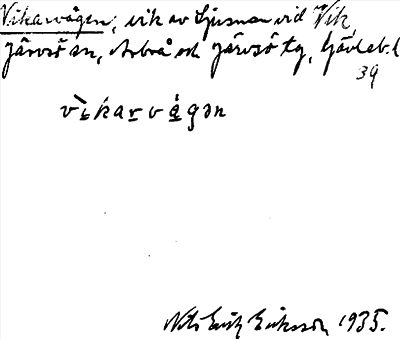 Vikarvågen, vik av Ljusnan vid Vik,
Järvsö sn, Arbrå och Järvsö tg, Gävleb. l
39
vìkarvågən
Nils Erik Eriksson 1935.